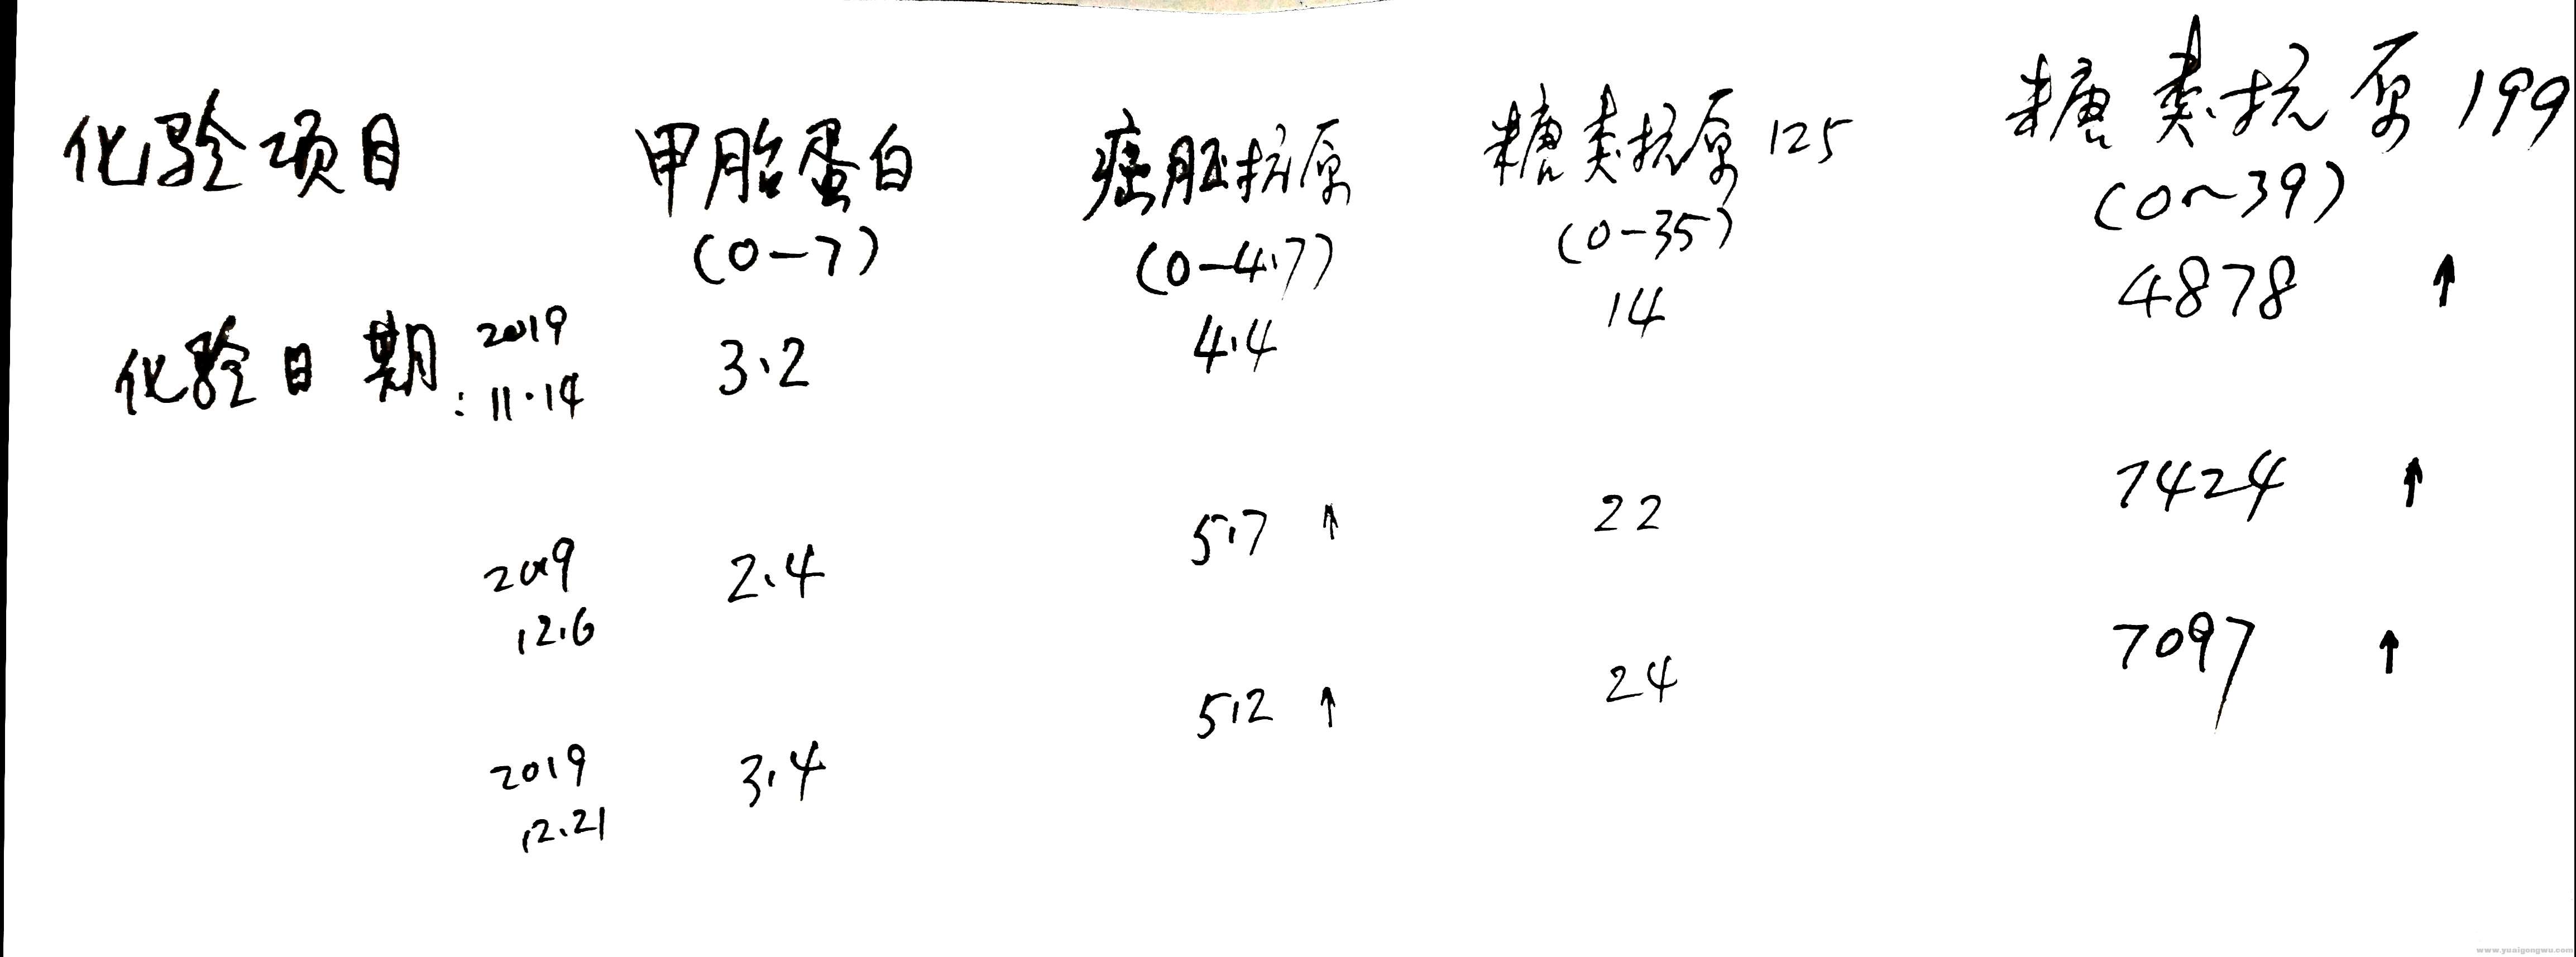 化验项目 甲胎蛋白 癌胚抗原 糖类抗原 125 糖类抗原 199
(0-7) (0-4.7) (0-35) (0~39)
化验日期: 2019 11.14 3.2 4.4 14 4878 ↑
2019 12.6 2.4 5.7 ↑ 22 7424 ↑
2019 12.21 3.4 5.2 ↑ 24 7097 ↑
www.yuaigongwu.com